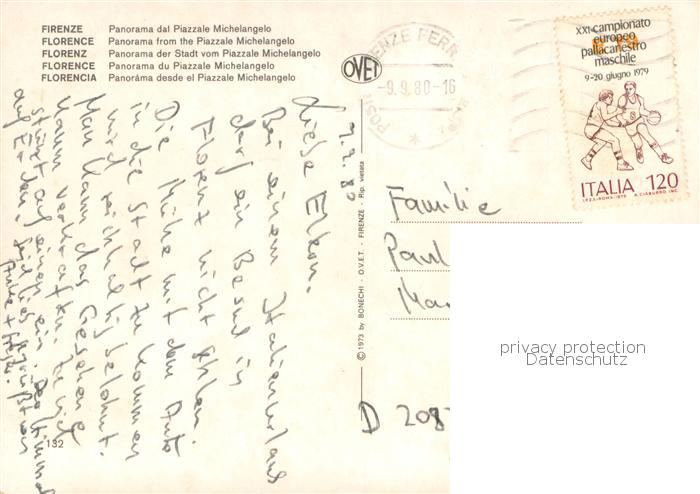 FIRENZE Panorama dal Piazzale Michelangelo
FLORENCE Panorama from the Piazzale Michelangelo
FLORENZ Panorama der Stadt vom Piazzale Michelangelo
FLORENCE Panorama du Piazzale Michelangelo
FLORENCIA Panoráma desde el Piazzale Michelangelo
OVET
-9.9.80-16
XXI campionato
europeo
pallacanestro
maschile
9-20 giugno 1979
ITALIA 120
I.P.Z.S.-ROMA-1979 A. CIABURRO INC.
© 1973 by BONECHI - O.V.E.T. - FIRENZE - Rip. vietata
Liebe Eltern.
Bei einem Italienurlaub
darf ein Besuch in
Florenz nicht fehlen.
Die Mühe mit dem Auto
in die Stadt zu kommen
wird reichhaltig belohnt.
Man kann das Gesehene
kaum verkraften. Zuviel
stürzt auf einen ein.
auf Erden.
Familie
Paul
Ma
D 208
132
privacy protection
Datenschutz